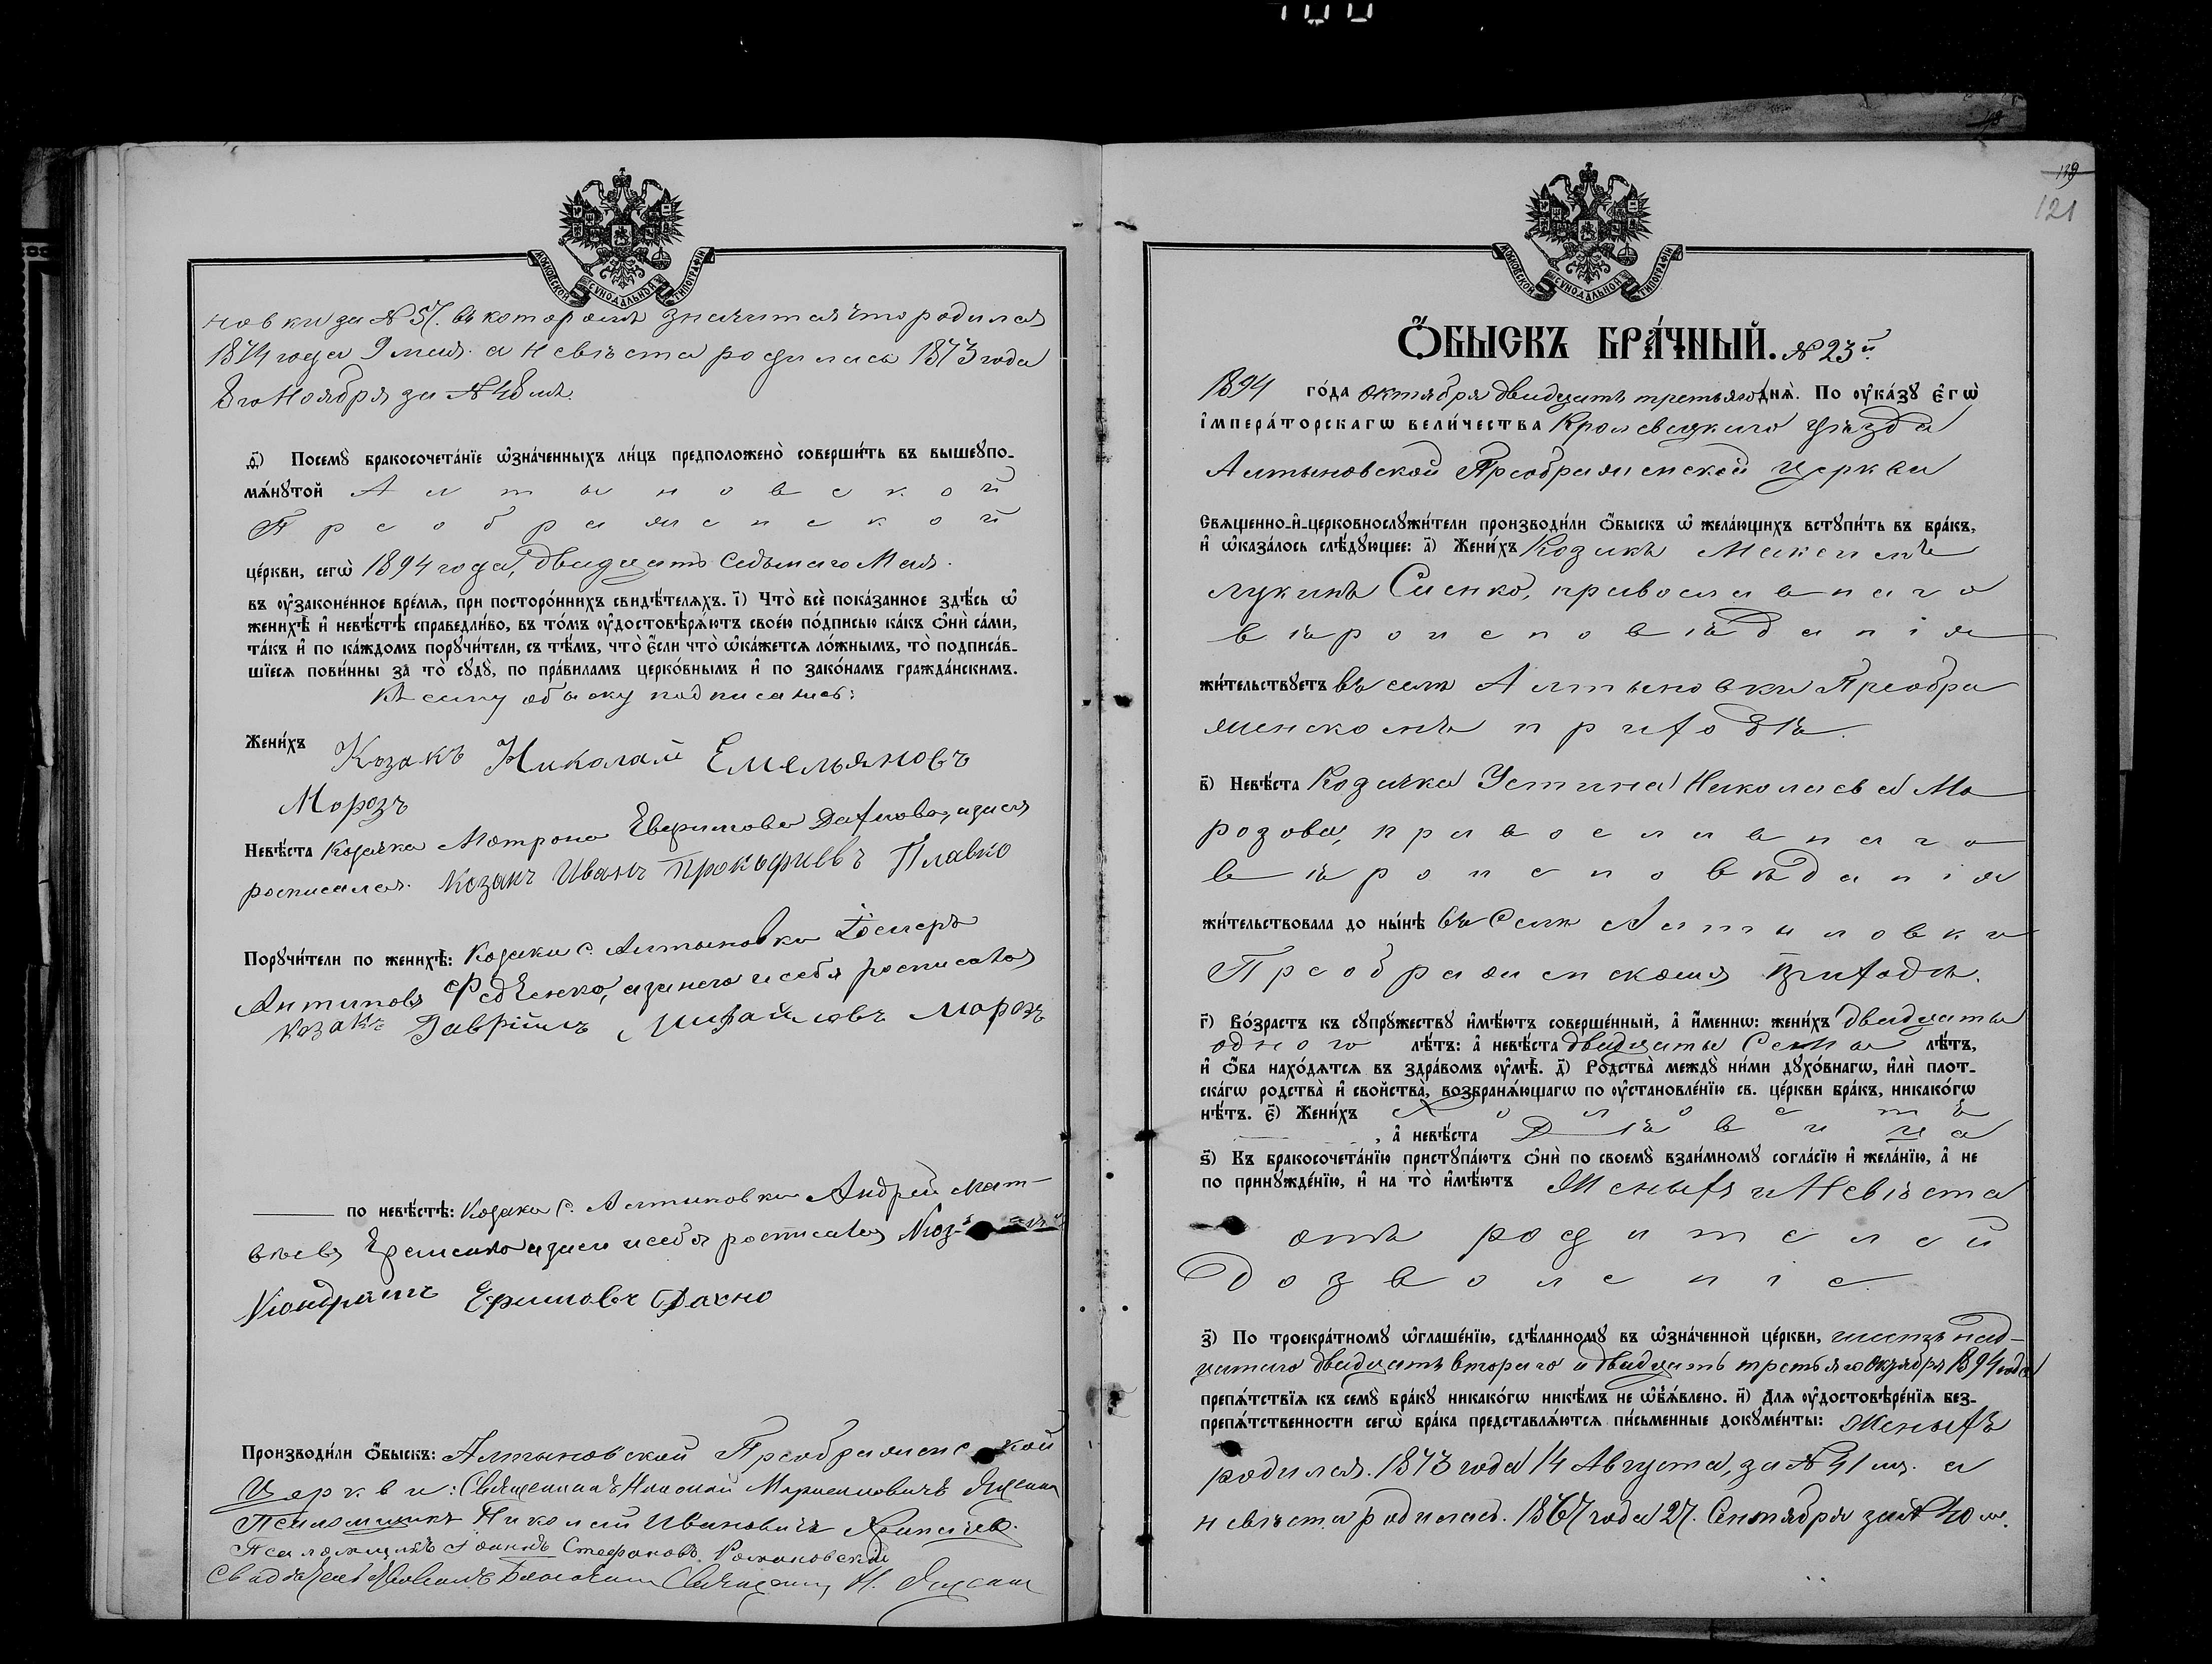 МОСКОВСКОЙ СУНОДАЛЬНОЙ ТИПОГРАФІИ
новки за № 57. въ которомъ значится что родился
1874 года 9 мая. а невѣста родилась 1873 года
8го Ноября за № 48мъ.
ѳ҃) Посемꙋ̀ бракосочета́нїе ѡ҆зна́ченныхъ ли́цъ предположено̀ соверши́ть въ вышеꙋпо-
мѧ́нꙋтой Алтыновской
Преображенской
це́ркви, сегѡ̀ 1894 года, двадцать седьмаго Мая.
въ ᲂу҆законе́нное вре́мѧ, при посторо́ннихъ свидѣ́телѧхъ. і҃) Что̀ всѐ пока́занное здѣ́сь ѡ҆
женихѣ̀ и҆ невѣ́стѣ справедли́во, въ то́мъ ᲂу҆достовѣрѧ́ютъ свое́ю по́дписью ка́къ ѻ҆нѝ са́ми,
та́къ и҆ по ка́ждомъ порꙋчи́тели, съ тѣ́мъ, что̀ є҆́сли что̀ ѡ҆ка́жетсѧ ло́жнымъ, то̀ подписа́в-
шїесѧ пови́нны за̀ то̀ сꙋдꙋ̀, по пра́виламъ церко́внымъ и҆ по зако́намъ гражда́нскимъ.
Къ сему обыску подписались:
Жени́хъ Козакъ Николай Емельяновъ
Морозъ
Невѣ́ста Козачка Мотрона Евфимова Дахнова, а за ея
росписался. Козакъ Иванъ Прокофиевъ Плавко
Порꙋчи́тели по женихѣ̀: Козаки с. Алтыновки
Антиповъ Федченко, а за него и себя росписался
Козакъ Гаврііилъ Михайловъ Морозъ
по невѣ́стѣ: Козаки с. Алтыновки Андрей Мат-
вѣевъ Еременко а за его и себя росписался
Кондратъ Ефимовъ Дахно
Производи́ли ѻ҆́быскъ: Алтыновской Преображенской
Церкви: Священникъ Николай
Псаломщикъ Николай Ивановичъ
Псаломщикъ Іоаннъ Стефановъ Романовскій
Священникъ Н.
119
121
МОСКОВСКОЙ СУНОДАЛЬНОЙ ТИПОГРАФІИ
Ѻ҆́БЫСКЪ БРА́ЧНЫЙ. № 23й
1894 го́да октября двадцать третьяго днѧ̀. По ᲂу҆ка́зꙋ є҆гѡ̀
і҆мпера́торскагѡ вели́чества Кролевецкаго уѣзда
Алтыновской Преображенской церкви
Свѧще́нно-и҆-церковнослꙋжи́тели производи́ли ѻ҆́быскъ ѡ҆ жела́ющихъ встꙋпи́ть въ бра́къ,
и҆ ѡ҆каза́лось слѣ́дꙋющее: а҃) Жени́хъ Козакъ Максимъ
Лукинъ Сиенко, православнаго
вѣроисповѣданія
жи́тельствꙋетъ въ селѣ Алтыновки Преобра
женскомъ приходѣ.
в҃) Невѣ́ста Козачка Устина Николаева Мо
розова, православнаго
вѣроисповѣданія
жи́тельствовала до ны́нѣ въ селѣ Алтыновки
Преображенскомъ приходѣ.
г҃) Во́зрастъ къ сꙋпрꙋ́жествꙋ и҆мѣ́ютъ соверше́нный, а҆ и҆́меннѡ: жени́хъ двадцать
одного лѣ́тъ: а҆ невѣ́ста двадцать семь лѣ́тъ,
и҆ ѻ҆́ба нахо́дѧтсѧ въ здра́вомъ ᲂу҆мѣ̀. д҃) Родства̀ междꙋ̀ ни́ми дꙋхо́внагѡ, и҆лѝ плот-
ска́гѡ родства̀ и҆ сво́йства̀, возбранѧ́ющагѡ по ᲂу҆становле́нїю св. це́ркви бра́къ, никако́гѡ
нѣ́тъ. є҃) Жени́хъ Холостъ
, а҆ невѣ́ста Дѣвица
ѕ҃) Къ бракосочета́нїю пристꙋпа́ютъ ѻ҆нѝ по своемꙋ̀ взаи́мномꙋ согла́сїю и҆ жела́нїю, а҆ не
по принꙋжде́нїю, и҆ на то̀ и҆мѣ́ютъ Женыхъ и Невѣста
отъ родителей
дозволеніе
з҃) По троекра́тномꙋ ѡ҆глаше́нїю, сдѣ́ланномꙋ въ ѡ҆зна́ченной це́ркви, шестънад-
цатаго двадцать втораго и двадцать третьяго Октября 1894 года
препѧ́тствїѧ къ семꙋ̀ бра́кꙋ никако́гѡ никѣ́мъ не ѡ҆б̾ѧ́влено. и҃) Длѧ ᲂу҆достовѣре́нїѧ без-
препѧ́тственности сегѡ̀ бра́ка представлѧ́ютсѧ пи́сьменные докꙋме́нты: Женыхъ
родился. 1873 года 14 Августа, за № 41 мъ. а
невѣста родилась. 1867 года 27. Сентября за № 40 м.